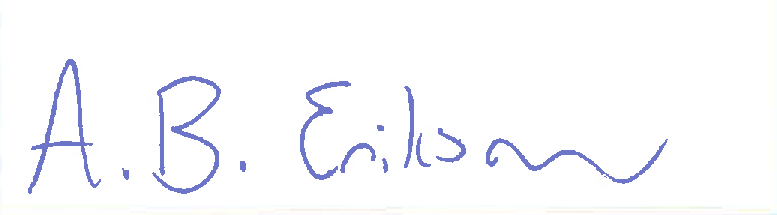 A.B. Erikson